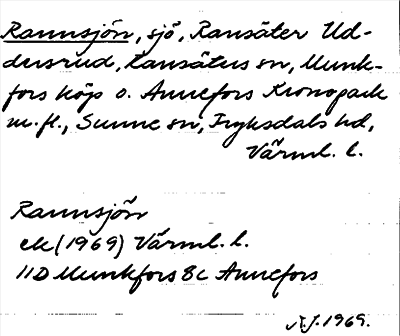 Rannsjön, sjö, Ransäter Ud-
dersrud, Ransäters sn, Munk-
fors köp o. Annefors Kronopark
m.fl., Sunne sn, Fryksdals hd,
Värml. l.
Rannsjön
ek (1969) Värml. l.
11D Munkfors 8c Annefors
1969.